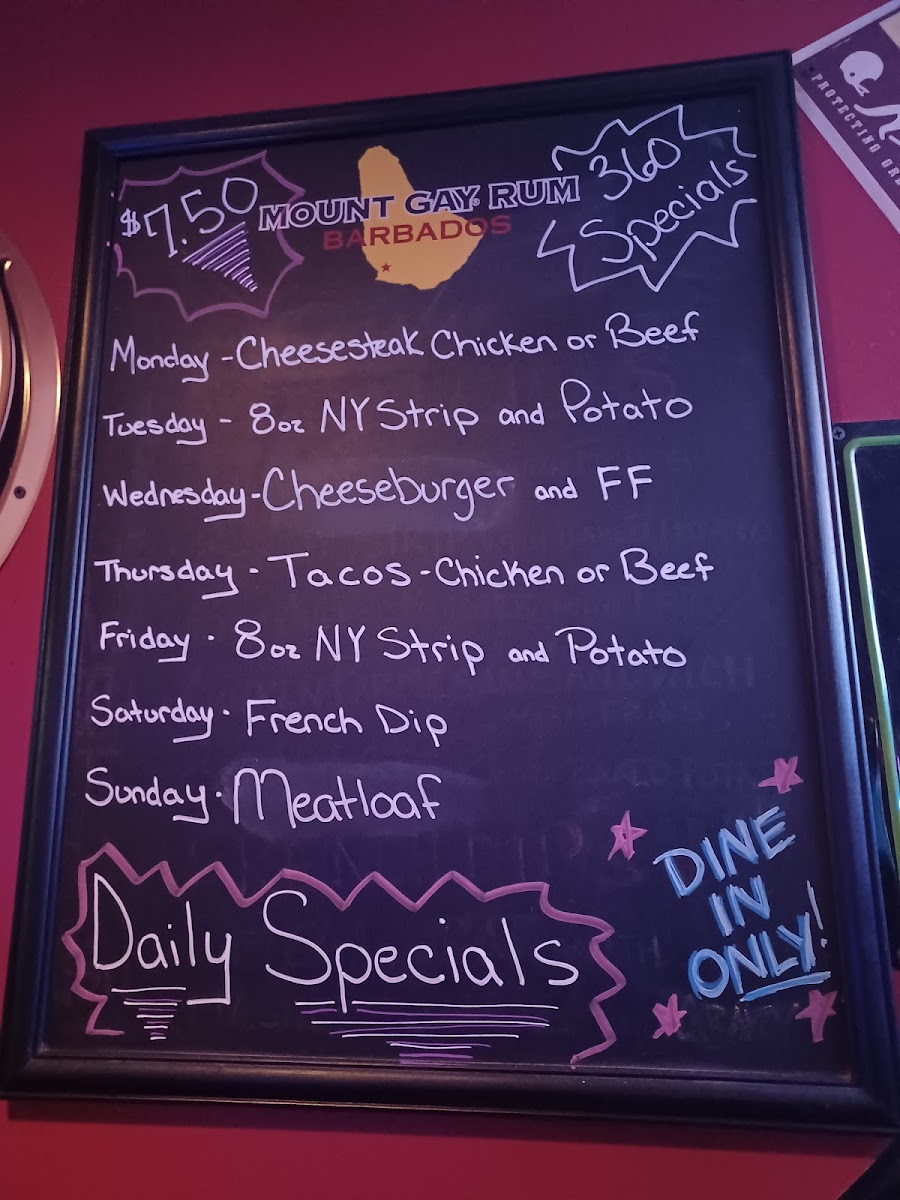 $7.50
MOUNT GAY® RUM
BARBADOS
360
Specials
Monday - Cheesesteak Chicken or Beef
Tuesday - 8oz NY Strip and Potato
Wednesday - Cheeseburger and FF
Thursday - Tacos - Chicken or Beef
Friday - 8oz NY Strip and Potato
Saturday - French Dip
Sunday - Meatloaf
Daily Specials
DINE
IN
ONLY!
PROTECTING